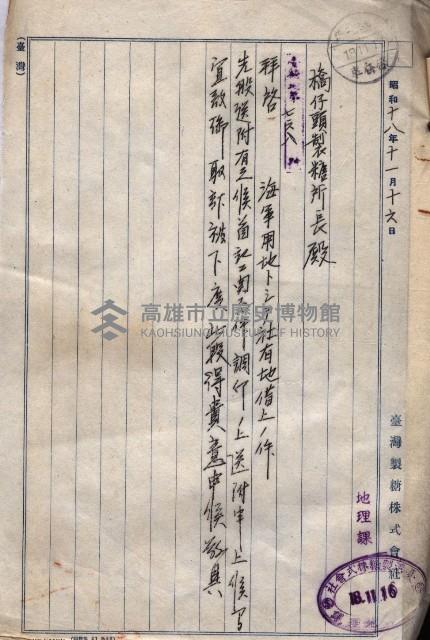 昭和十八年十一月十六日
臺灣製糖株式會社
地理課
18.11.16
橋仔頭製糖所長殿
拜啓 海軍用地トシテ社有地借上ノ件
先般送附有之候首記ニ関スル件調印ノ上送附申上候
宜敷御取計被下度此段得貴意申候 敬具
(臺灣)
高雄市立歷史博物館
KAOHSIUNG MUSEUM OF HISTORY